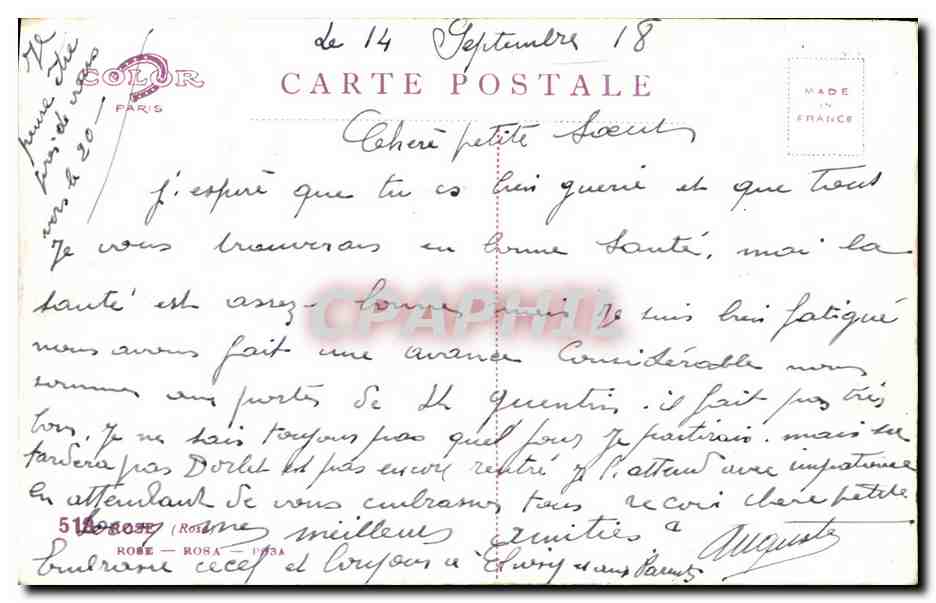 Le 14 Septembre 18
COLOR
PARIS
CARTE POSTALE
MADE
IN
FRANCE
Je
pense être
près de vous
vers le 20
Chère petite Soeur
J'espère que tu es bien guerie et que tout
Je vous trouverais en bonne Santé, moi la
santé est assez bonne mais je suis bien fatigué
nous avons fait une avance Considérable nous
sommes aux portes de St Quentin. il fait pas très
bon. Je ne sais toujours pas quel jour je partirais. mais ne
tardera pas Dorlet est pas encore rentré je l'attend avec impatience
En attendant de vous embrasser tous reçoit chère petite
mes meilleurs amitiés
Auguste
Embrasse et aux Parents
518 ROSE (Rose)
ROSE — ROSA — РОЗА
CPAPHIL